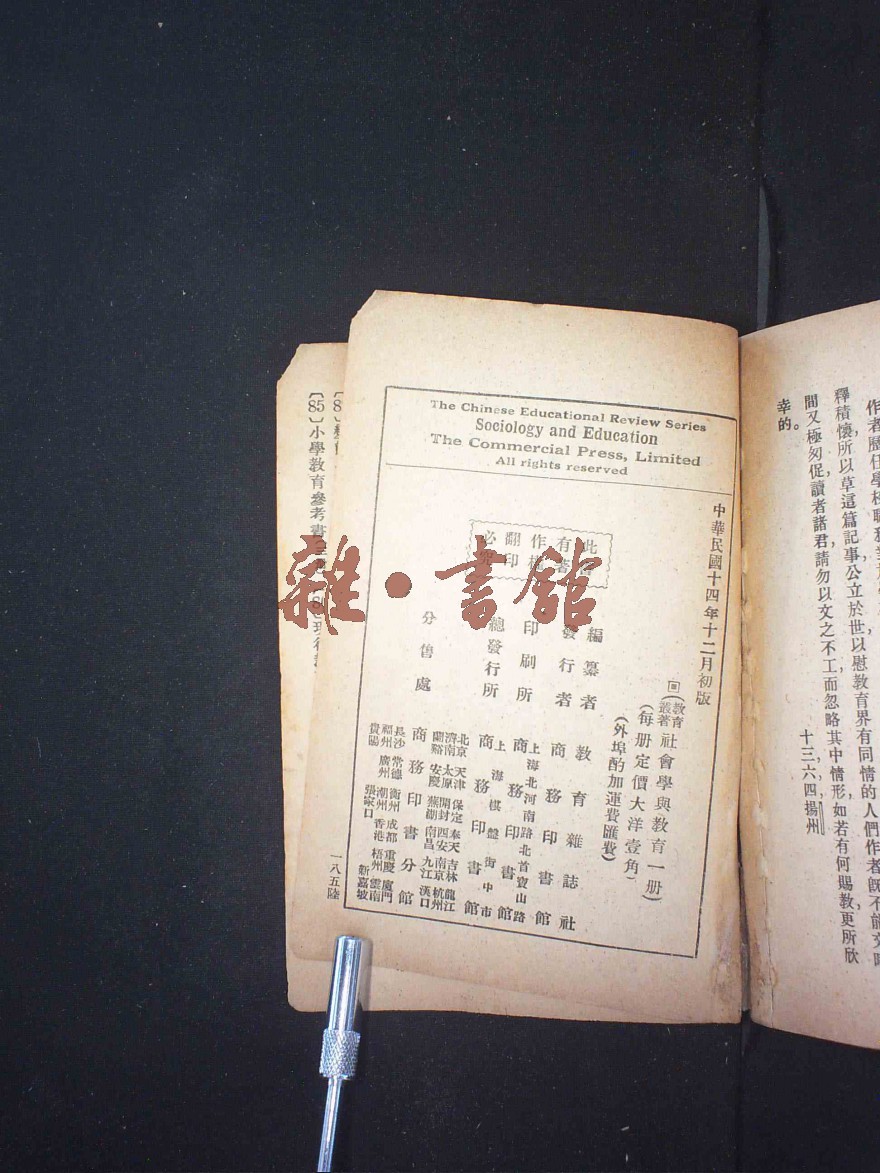 作者歷任學校職務
釋積懷所以草這篇記事公立於世以慰教育界有同情的人們作者既不能文
間又極匆促讀者諸君請勿以文之不工而忽略其中情形如若有何賜教更所欣
幸的。
十三,六,四,揚州
The Chinese Educational Review Series
Sociology and Education
The Commercial Press, Limited
All rights reserved
中華民國十四年十二月初版
(教育叢著)社會學與教育一册)
(每册定價大洋壹角)
(外埠酌加運費匯費)
此書有著作權翻印必究
編纂者 教育雜誌社
發行者 商務印書館
印刷所 上海北河南路北首寶山路 商務印書館
總發行所 上海棋盤街中市 商務印書館
分售處 商務印書分館
北京 天津 保定 奉天 吉林 龍江
濟南 太原 開封 西安 南京 杭州
蘭谿 安慶 蕪湖 南昌 九江 漢口
長沙 常德 衡州 成都 重慶 廈門
福州 廣州 潮州 香港 梧州 雲南
貴陽 張家口 新嘉坡
一八五陸
〔85〕小學教育參考書
雜·書館